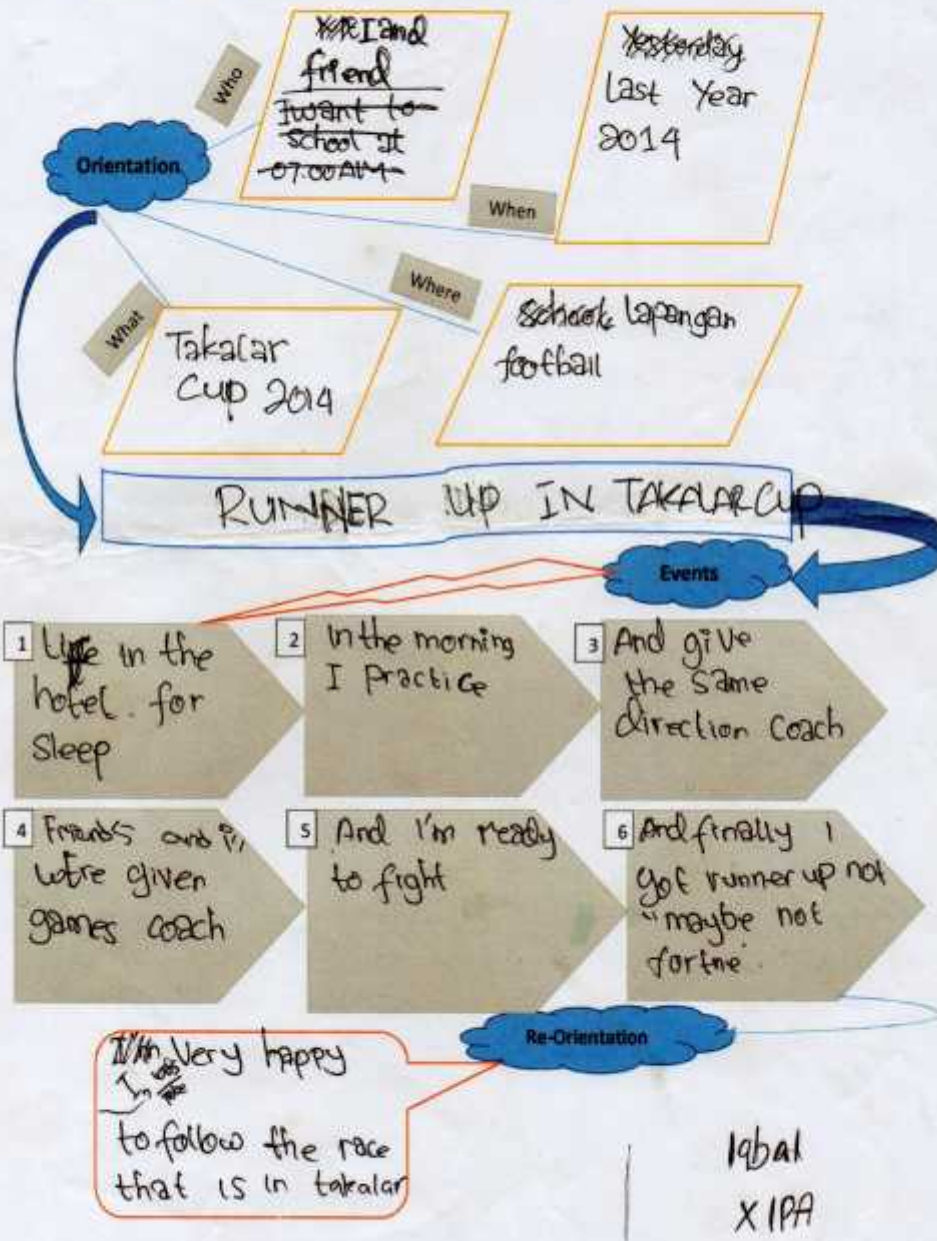 Orientation
Who
I and
friend
I want to
school at
07.00 AM
When
Yesterday
Last Year
2014
What
Takalar
CUP 2014
Where
school Lapangan
football
RUNNER UP IN TAKALAR CUP
Events
1
in the
hotel. for
sleep
2
In the morning
I practice
3
And give
the same
direction coach
4
Friends and i
were given
games coach
5
And I'm ready
to fight
6
And finally I
got runner up not
"maybe not
fortne.
Re-Orientation
Very happy
I
to follow the race
that is in takalar
Iqbal
X IPA